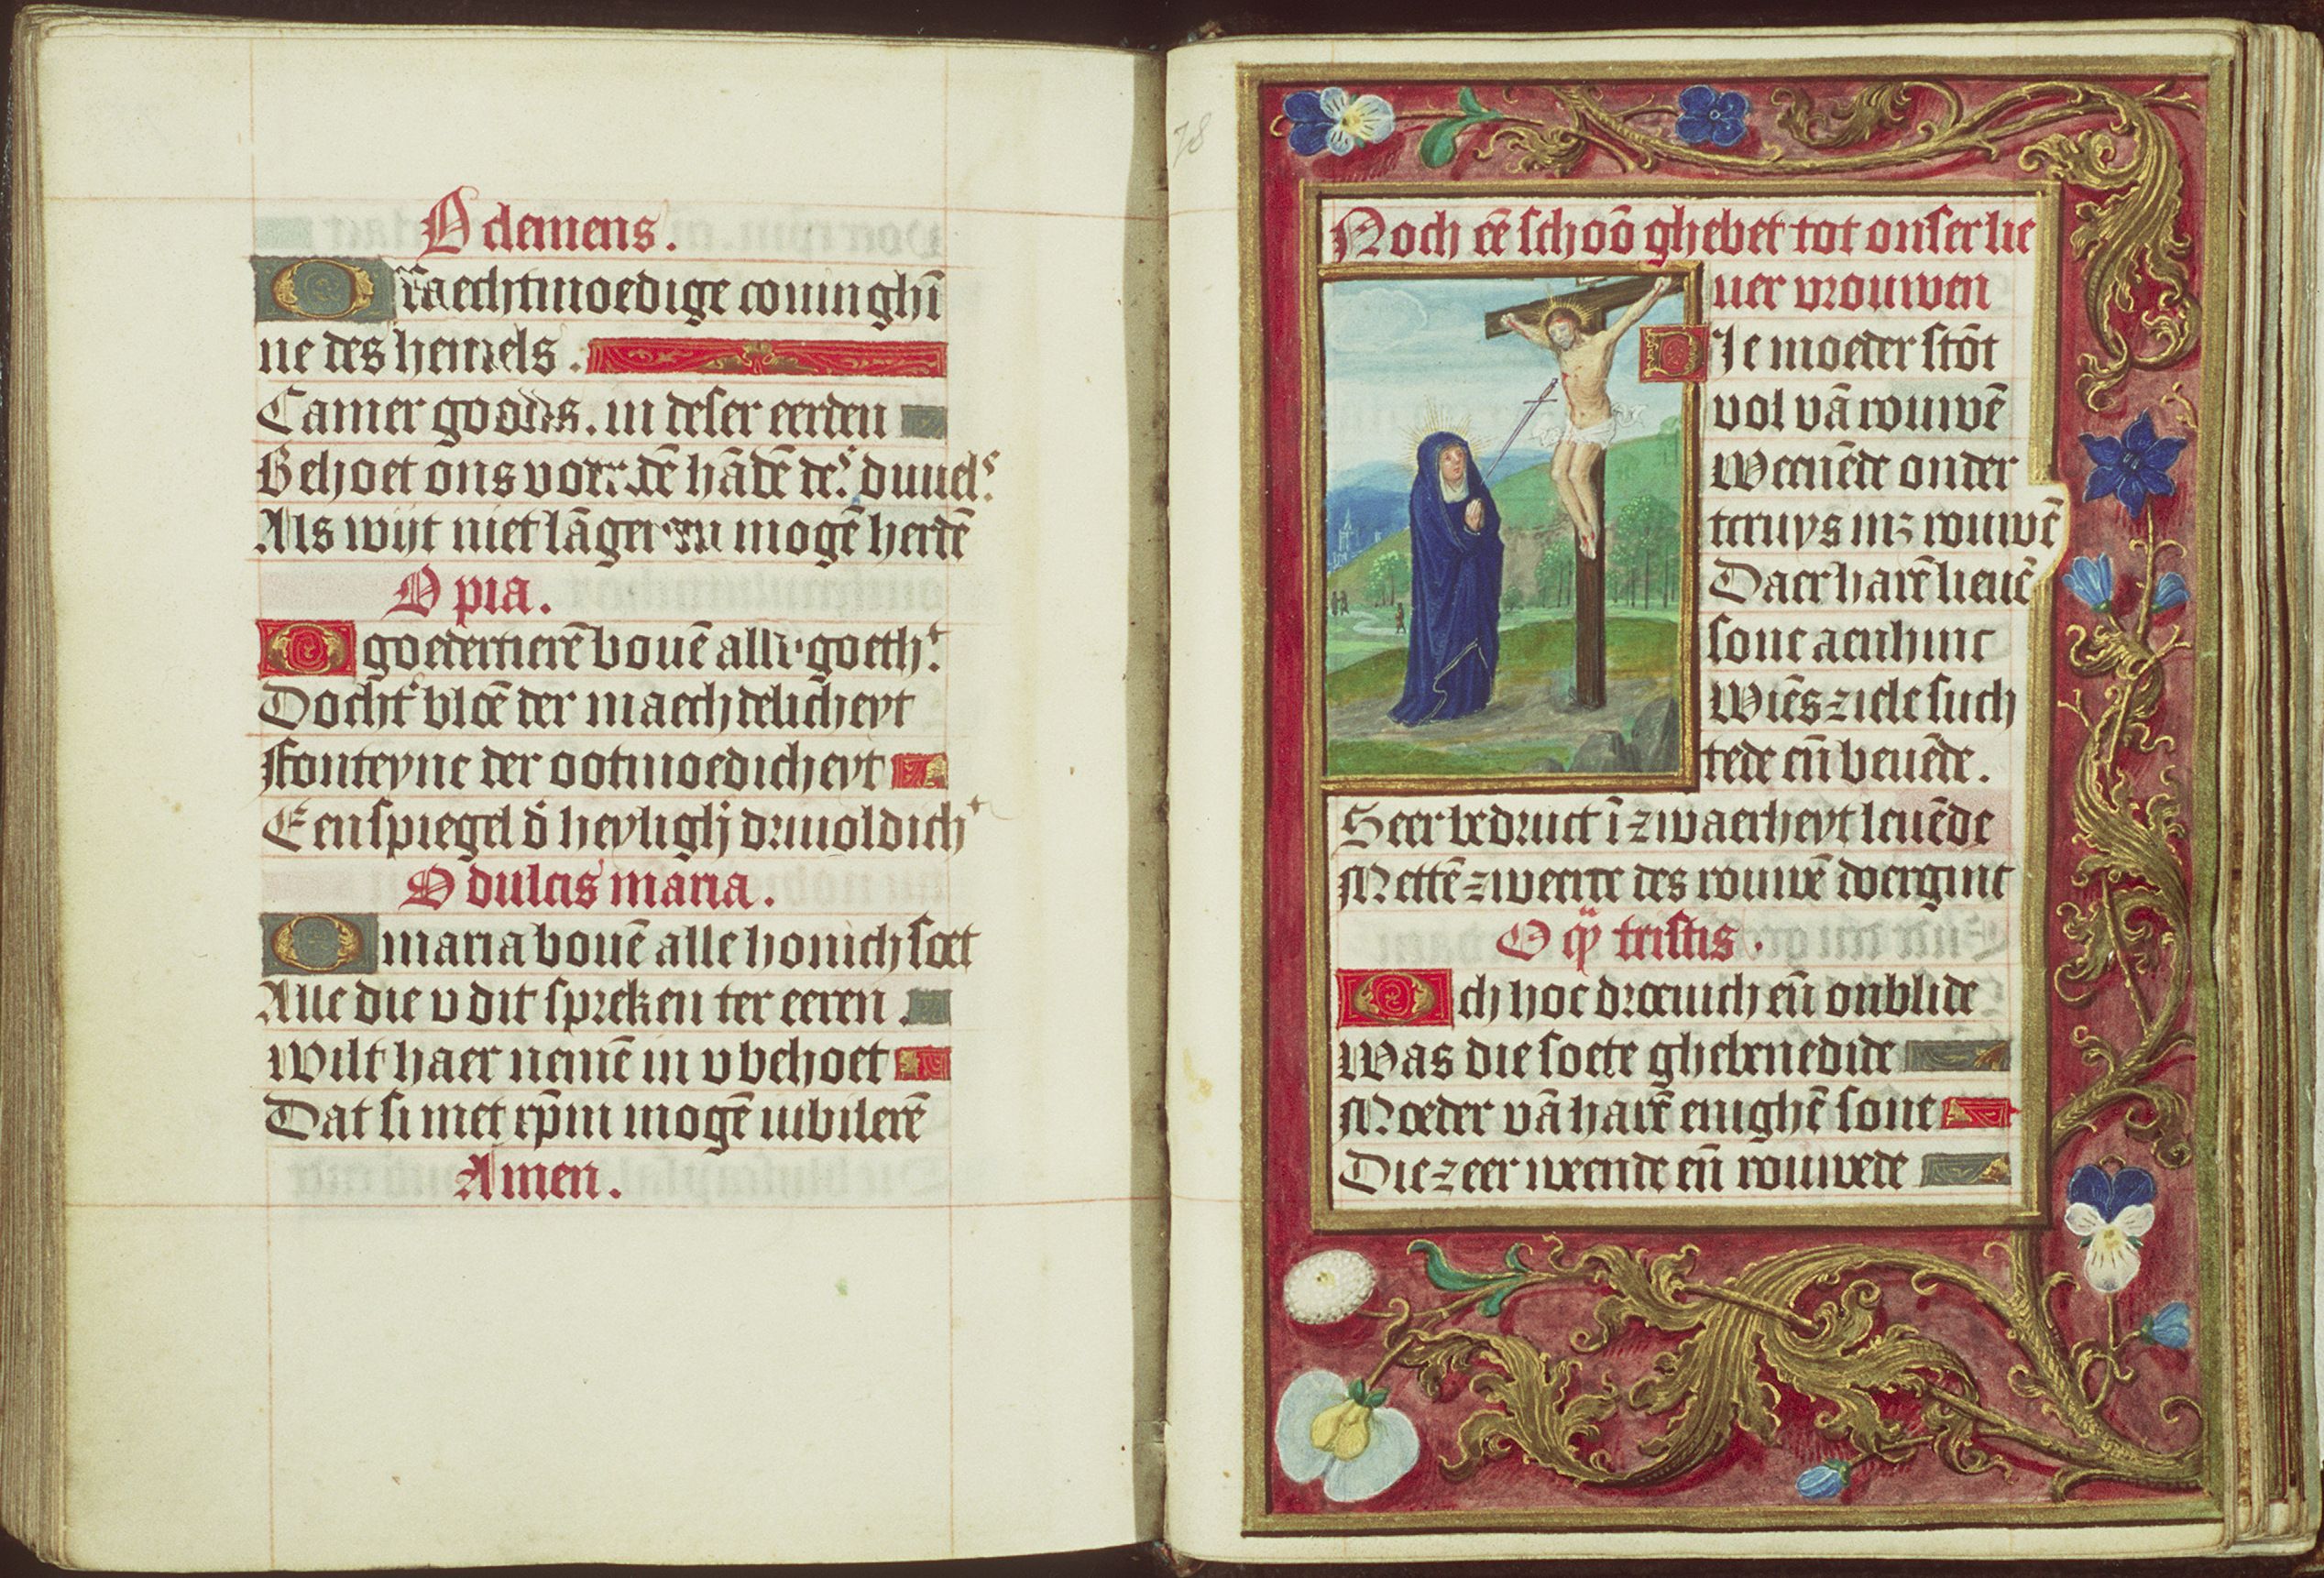 O clemens.
O Saechtmoedige coninghī
ne des hemels.
Camer goods. in deser eerden
Behoet ons voer dē hādē des duuels.
Als wijt niet lāger en mogē herdē
O pia.
O goedertierē bouē alle goeth.
Docht bloē der maechdelicheyt
Fonteyne der ootmoedicheyt
Een spiegel d heyligh druoldich
O dulcis maria.
O maria bouē alle honich soet
Alle die v dit spreken ter eeren.
Wilt haer nemē in v behoet
Dat si met xp̄m mogē iubilerē
Amen.
78
Noch eē schoō ghebet tot onser lie
uer vrouwen
DIe moeder stōt
vol vā rouwē
Weenēde onder
tcruys mz rouwē
Daer harē lieuē
sone aen hinc
Wiēs ziele such
tede en̄ beuēde.
Seer bedruct ī zwaerheyt leuēde
Mettē zweerde des rouwē doerginc
O q̄ tristis.
Och hoe droeuich en̄ onblide
Was die soete ghebenedide
Moeder vā harē enighē sone
Die zeer weende en̄ rouwede